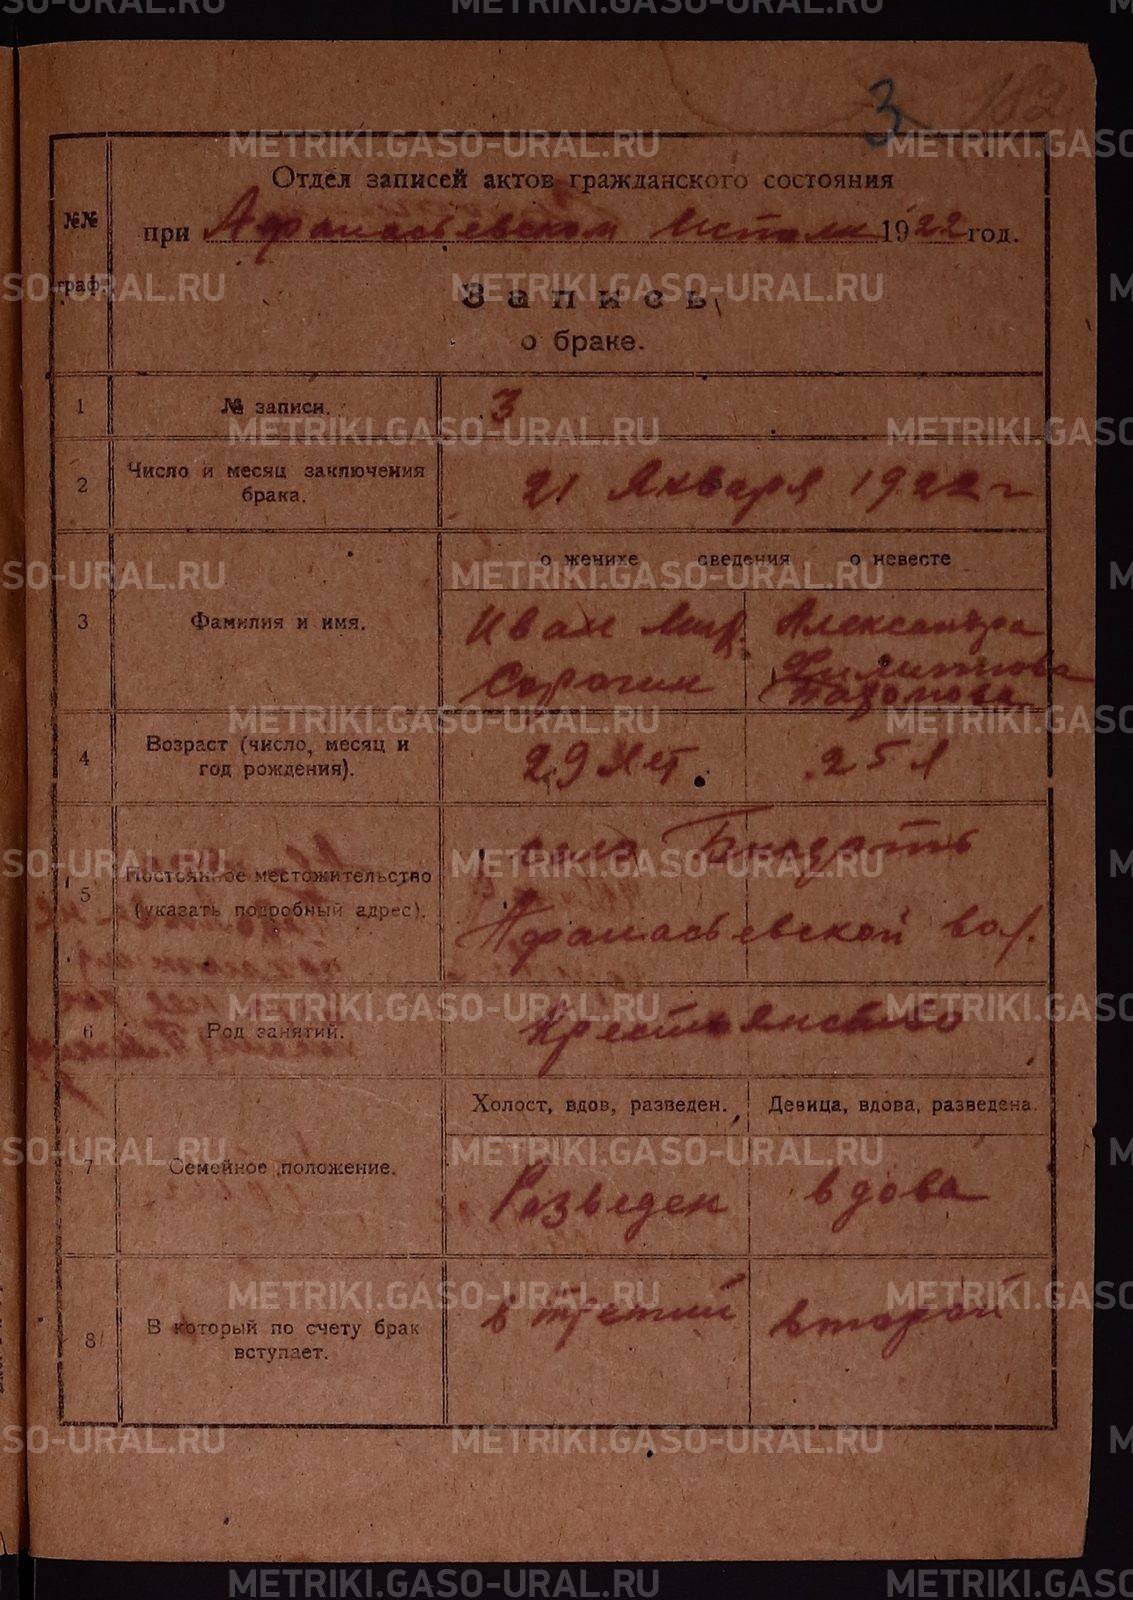 3 182
Отдел записей актов гражданского состояния
при Афанасьевском Исполк 1922 год.
№№
граф.
Запись
о браке.
1 № записи. 3
2 Число и месяц заключения брака. 21 Января 1922 г
о женихе сведения о невесте
3 Фамилия и имя.
Иван Мир. Александра
Сорогин
4 Возраст (число, месяц и год рождения). 29 лет. 25 л
5 Постоянное местожительство (указать подробный адрес).
село
Афанасьевской вол.
6 Род занятий. Крестьянство
Холост, вдов, разведен. Девица, вдова, разведена.
7 Семейное положение. Разведен вдова
8 В который по счету брак вступает. в третий второй
METRIKI.GASO-URAL.RU